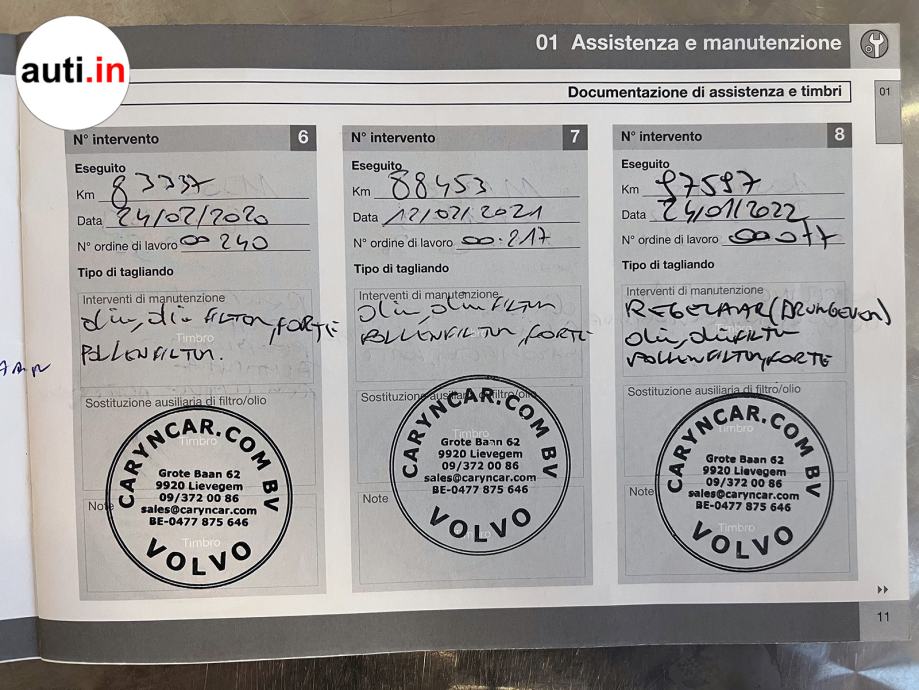 auti.in
01 Assistenza e manutenzione
Documentazione di assistenza e timbri
01
N° intervento 6
Eseguito
Km 83337
Data 24/02/2020
N° ordine di lavoro 00 240
Tipo di tagliando
Interventi di manutenzione
olie, oliefilter, FORTE
POLLENFILTER.
Sostituzione ausiliaria di filtro/olio
Timbro
CARYNCAR.COM BV
Grote Baan 62
9920 Lievegem
09/372 00 86
sales@caryncar.com
BE-0477 875 646
VOLVO
Note
Timbro
N° intervento 7
Eseguito
Km 88453
Data 12/02/2021
N° ordine di lavoro 00.217
Tipo di tagliando
Interventi di manutenzione
olie, oliefilter
POLLENFILTER, FORTE
Sostituzione ausiliaria di filtro/olio
Timbro
CARYNCAR.COM BV
Grote Baan 62
9920 Lievegem
09/372 00 86
sales@caryncar.com
BE-0477 875 646
VOLVO
Note
N° intervento 8
Eseguito
Km 97597
Data 24/01/2022
N° ordine di lavoro 00077
Tipo di tagliando
Interventi di manutenzione
olie, oliefilter
POLLENFILTER, FORTE
Sostituzione ausiliaria di filtro/olio
Timbro
CARYNCAR.COM BV
Grote Baan 62
9920 Lievegem
09/372 00 86
sales@caryncar.com
BE-0477 875 646
VOLVO
Note
11